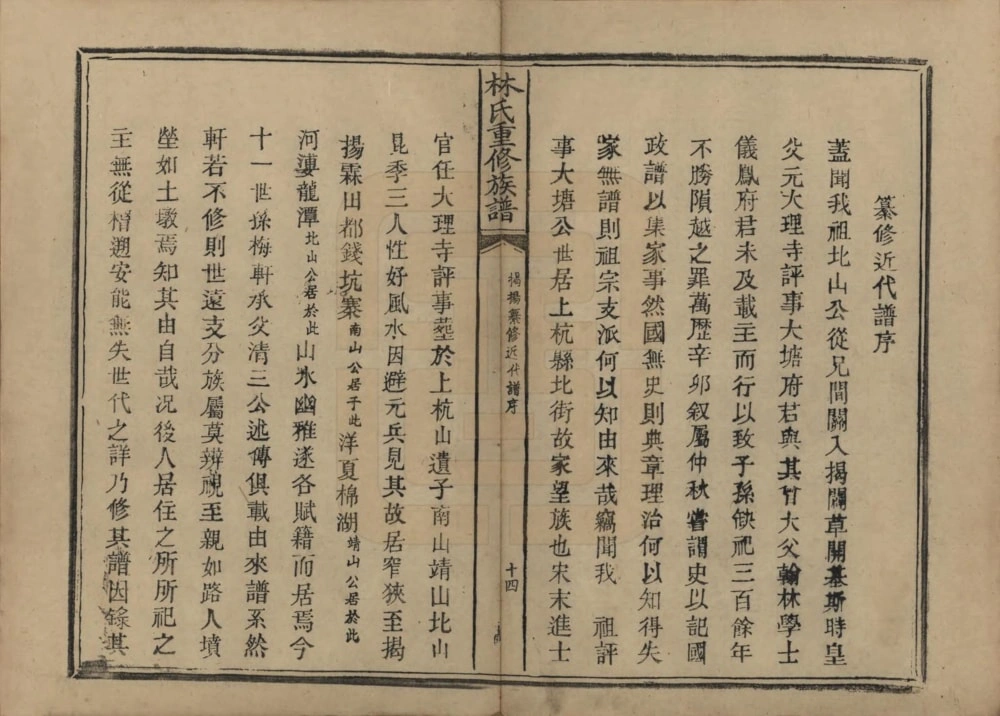 纂修近代譜序
蓋聞我祖北山公從兄間關入揭闢草開基斯時皇
父元大理寺評事大塘府君與其竹大父翰林學士
儀鳳府君未及載主而行以致子孫缺祀三百餘年
不勝隕越之罪萬歷辛卯叙屬仲秋嘗謂史以記國
政譜以集家事然國無史則典章理治何以知得失
家無譜則祖宗支派何以知由來哉竊聞我　祖評
事大塘公世居上杭縣北街故家望族也宋末進士
林氏重修族譜
揭揚纂修近代譜序
十四
官任大理寺評事塟於上杭山遺子南山靖山北山
昆季三人性好風水因避元兵見其故居窄狹至揭
揚霖田都錢坑寨南山公居于此洋夏棉湖靖山公居於此
河婆龍潭北山公居於此山水幽雅遂各賦籍而居焉今
十一世孫梅軒承父清三公述傳俱載由來譜系然
軒若不修則世遠支分族屬莫辨視至親如路人墳
塋如土墩焉知其由自哉况後人居住之所所祀之
主無從稽遡安能無失世代之詳乃修其譜因錄其